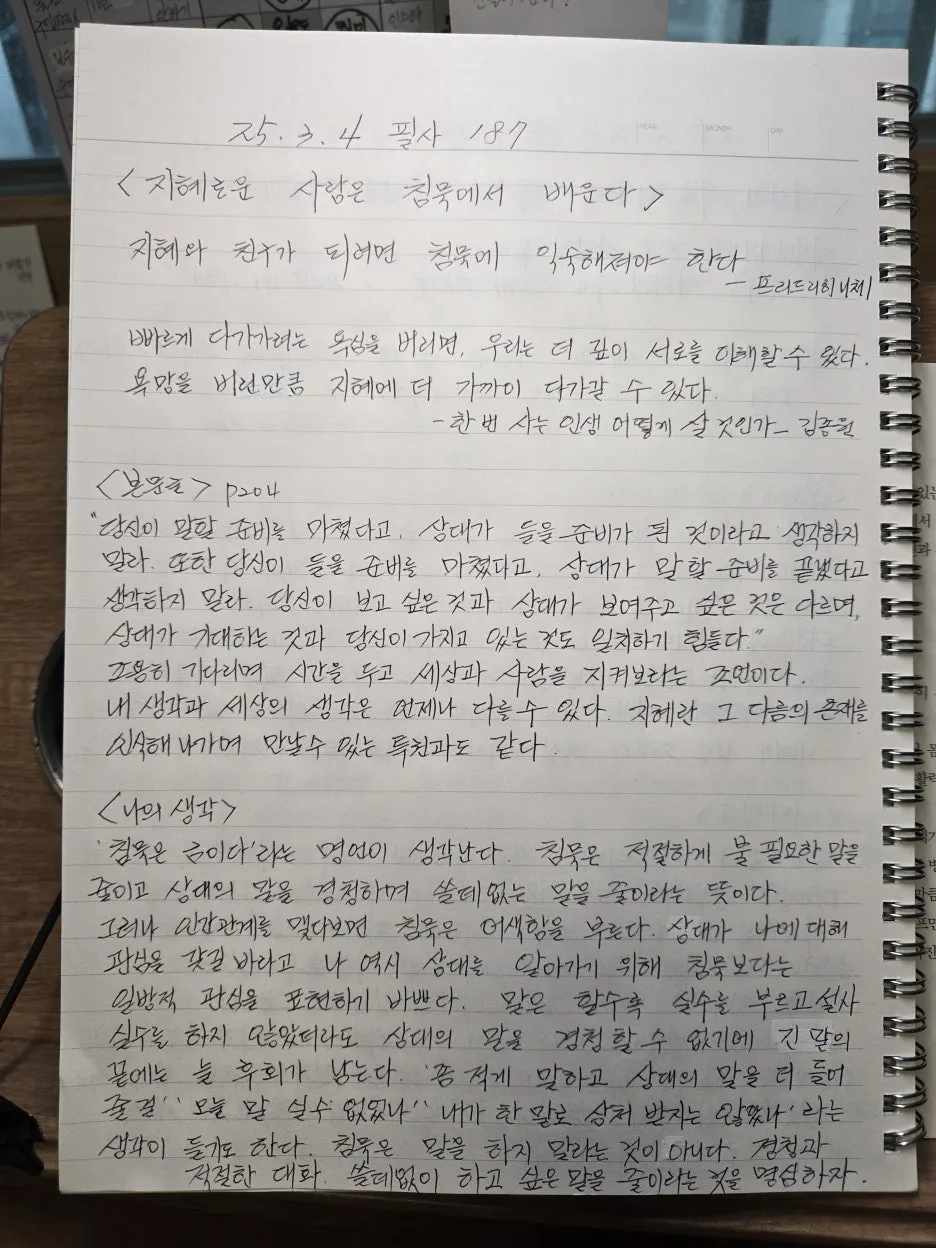 25. 3. 4 필사 187
YEAR MONTH DAY
<지혜로운 사람은 침묵에서 배운다>
지혜와 친구가 되려면 침묵에 익숙해져야 한다
- 프리드리히 니체
빠르게 다가가려는 욕심을 버리면, 우리는 더 깊이 서로를 이해할 수 있다.
욕망을 버린만큼 지혜에 더 가까이 다가갈 수 있다.
- 한 번 사는 인생 어떻게 살 것인가_ 김종원
<본문中> p204
"당신이 말할 준비를 마쳤다고, 상대가 들을 준비가 된 것이라고 생각하지
말라. 또한 당신이 들을 준비를 마쳤다고, 상대가 말할 준비를 끝냈다고
생각하지 말라. 당신이 보고 싶은 것과 상대가 보여주고 싶은 것은 다르며,
상대가 기대하는 것과 당신이 가지고 있는 것도 일치하기 힘들다."
조용히 기다리며 시간을 두고 세상과 사람을 지켜보라는 조언이다.
내 생각과 세상의 생각은 언제나 다를 수 있다. 지혜란 그 다름의 존재를
인식해 나가며 만날수 있는 특권과도 같다.
<나의 생각>
'침묵은 금이다'라는 명언이 생각난다. 침묵은 적절하게 불필요한 말을
줄이고 상대의 말을 경청하며 쓸데없는 말을 줄이라는 뜻이다.
그러나 인간관계를 맺다보면 침묵은 어색함을 부른다. 상대가 나에 대해
관심을 갖길 바라고 나 역시 상대를 알아가기 위해 침묵보다는
일방적 관심을 표현하기 바쁘다. 말은 할수록 실수를 부르고 설사
실수를 하지 않았더라도 상대의 말을 경청할 수 없기에 긴 말의
끝에는 늘 후회가 남는다. '좀 적게 말하고 상대의 말을 더 들어
줄 걸' '오늘 말 실수 없었나' '내가 한 말로 상처 받지는 않았나' 라는
생각이 들기도 한다. 침묵은 말을 하지 말라는 것이 아니다. 경청과
적절한 대화. 쓸데없이 하고 싶은 말을 줄이라는 것을 명심하자.